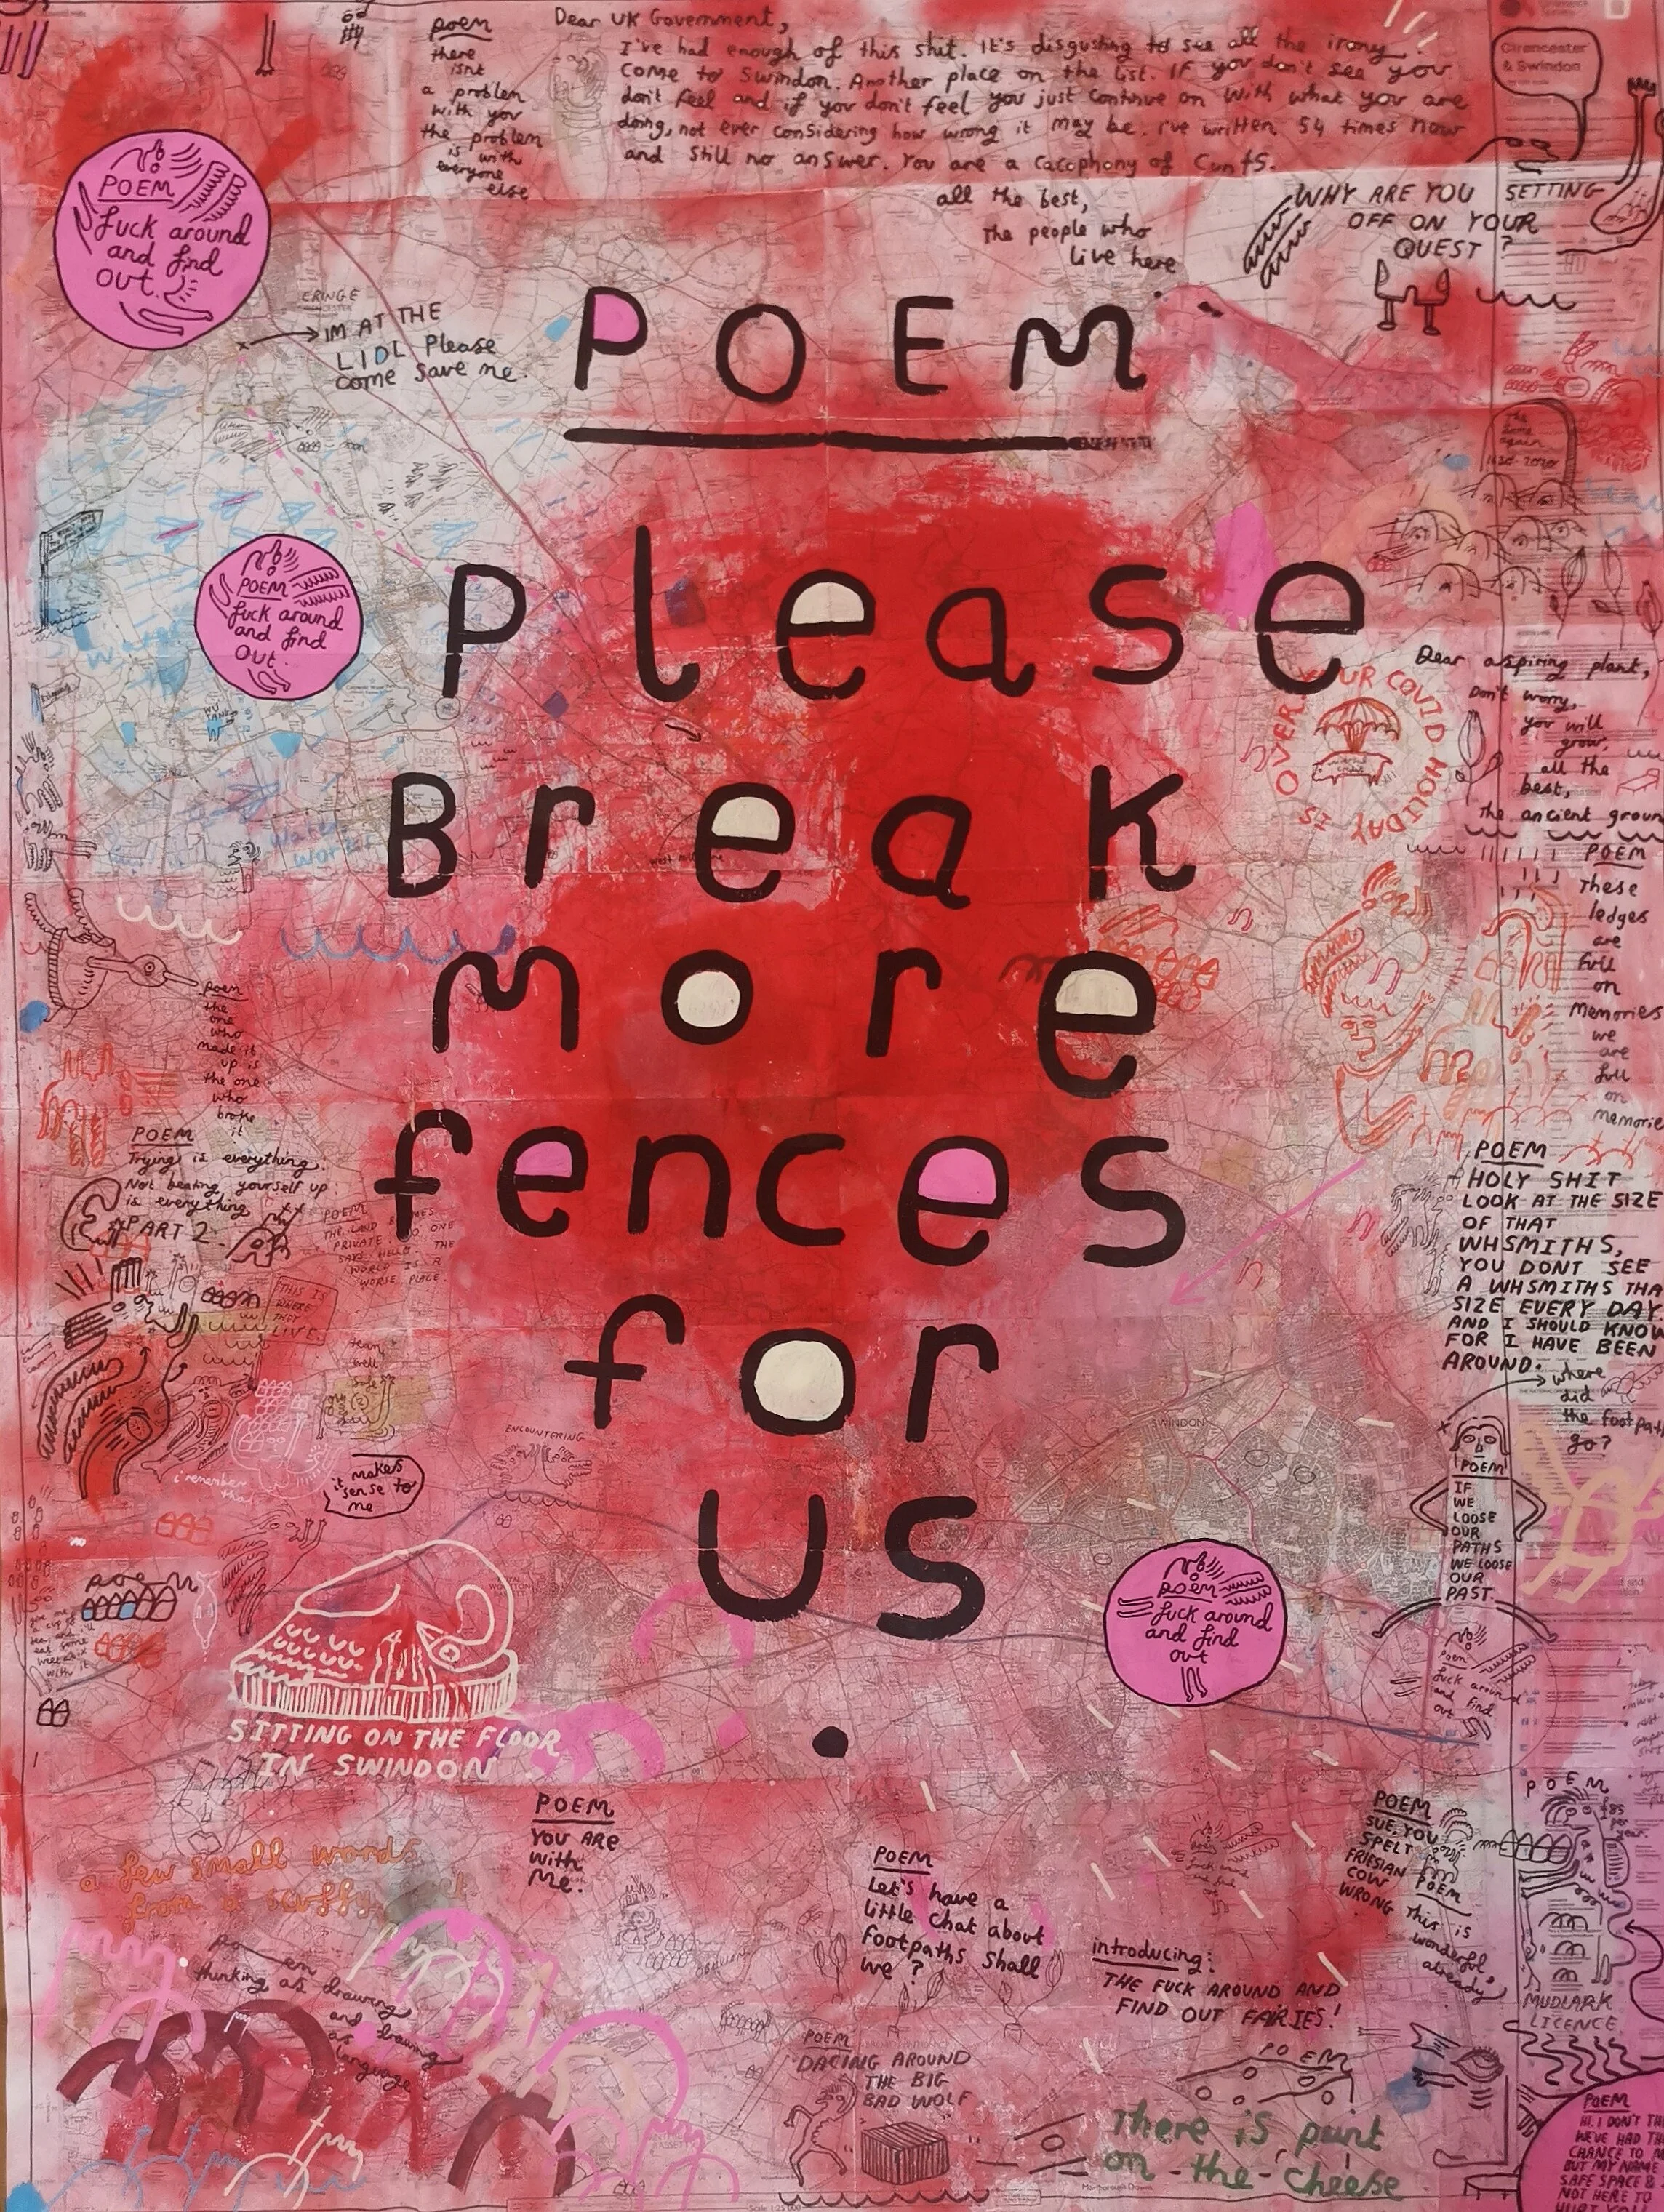 poem
there
isnt
a problem
with you
the problem
is with
everyone
else
Dear UK Government,
I've had enough of this shit. It's disgusting to see all the irony
come to Swindon. Another place on the list. IF you don't see you
don't feel and if you don't feel you just continue on with what you are
doing, not ever considering how wrong it may be. I've written 54 times now
and still no answer. You are a cacophony of Cunts.
all the best,
the people who
live here
Cirencester
& Swindon
WHY ARE YOU SETTING
OFF ON YOUR
QUEST?
POEM
fuck around
and find
out.
CRINGE
IM AT THE
LIDL Please
come save me.
POEM
Please
Break
more
fences
for
us
.
the
same
again
POEM
fuck around
and find
out.
WU
TANG
YOUR COVID HOLIDAY IS OVER
Dear aspiring plant,
Don't worry,
you will
grow,
all the
best,
the ancient groun
POEM
These
ledges
are
full
on
Memories
we
are
full
on
memorie
poem
the
one
who
made it
up is
the one
who
broke
it
POEM
Trying is everything.
Not beating yourself up
is everything
PART 2
POEM
THE LAND BECOMES
PRIVATE NO ONE
SAYS HELLO THE
WORLD IS A
WORSE PLACE.
THIS IS
WHERE
THEY
LIVE
POEM
HOLY SHIT
LOOK AT THE SIZE
OF THAT
WHSMITHS,
YOU DONT SEE
A WHSMITHS THA
SIZE EVERY DAY
AND I SHOULD KNOW
FOR I HAVE BEEN
AROUND.
where
did
the footpath
go?
SWINDON
ENCOUNTERING
i remember
that
it makes
sense to
me
POEM
IF
WE
LOOSE
OUR
PATHS
WE LOOSE
OUR
PAST.
poem
fuck around
and find
out
Poem
fuck around
and find
out
poem
SITTING ON THE FLOOR
IN SWINDON
a few small words
from a scruffy
POEM
YOU ARE
With
Me.
POEM
Let's have a
little chat about
footpaths shall
we?
introducing:
THE FUCK AROUND AND
FIND OUT FAIRIES!
POEM
SUE, YOU
SPELT
FRIESIAN
COW
WRONG
POEM
This is
wonderful,
already
POEM
£85
per
year.
MUDLARK
LICENCE
poem
thinking as drawing
and drawing
as
language
POEM
DACING AROUND
THE BIG
BAD WOLF
POEM
There is paint
on-the-cheese
POEM
HI. I DON'T TH
WE'VE HAD TH
CHANCE TO M
BUT MY NAME
SAFE SPACE &
NOT HERE TO